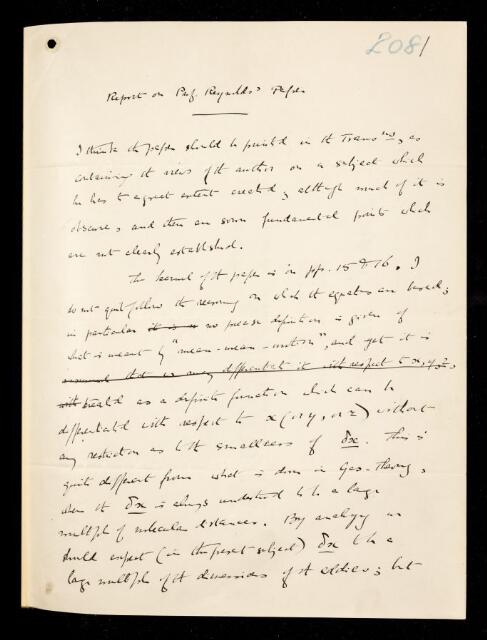 2081
Report on Prof. Reynolds' Paper
I think the paper should be printed in the Trans^ns, as
containing the views of the author on a subject which
he has to a great extent created; although much of it is
obscure, and there are some fundamental points which
are not clearly established.
The kernel of the paper is in pp. 15 & 16. I
do not quite follow the reasoning on which the equations are based;
in particular it is no precise definition is given of
what is meant by "mean-mean-motion", and yet it is
assumed that we may differentiate it with respect to x, y, z,
treated as a definite function which can be
differentiated with respect to x (or y, or z) without
any restriction as to the smallness of δx. This is
quite different from what is done in Gas-theory,
where the δx is always understood to be a large
multiple of molecular distances. By analogy we
should expect (in the present subject) δx to be a
large multiple of the dimensions of the eddies; but